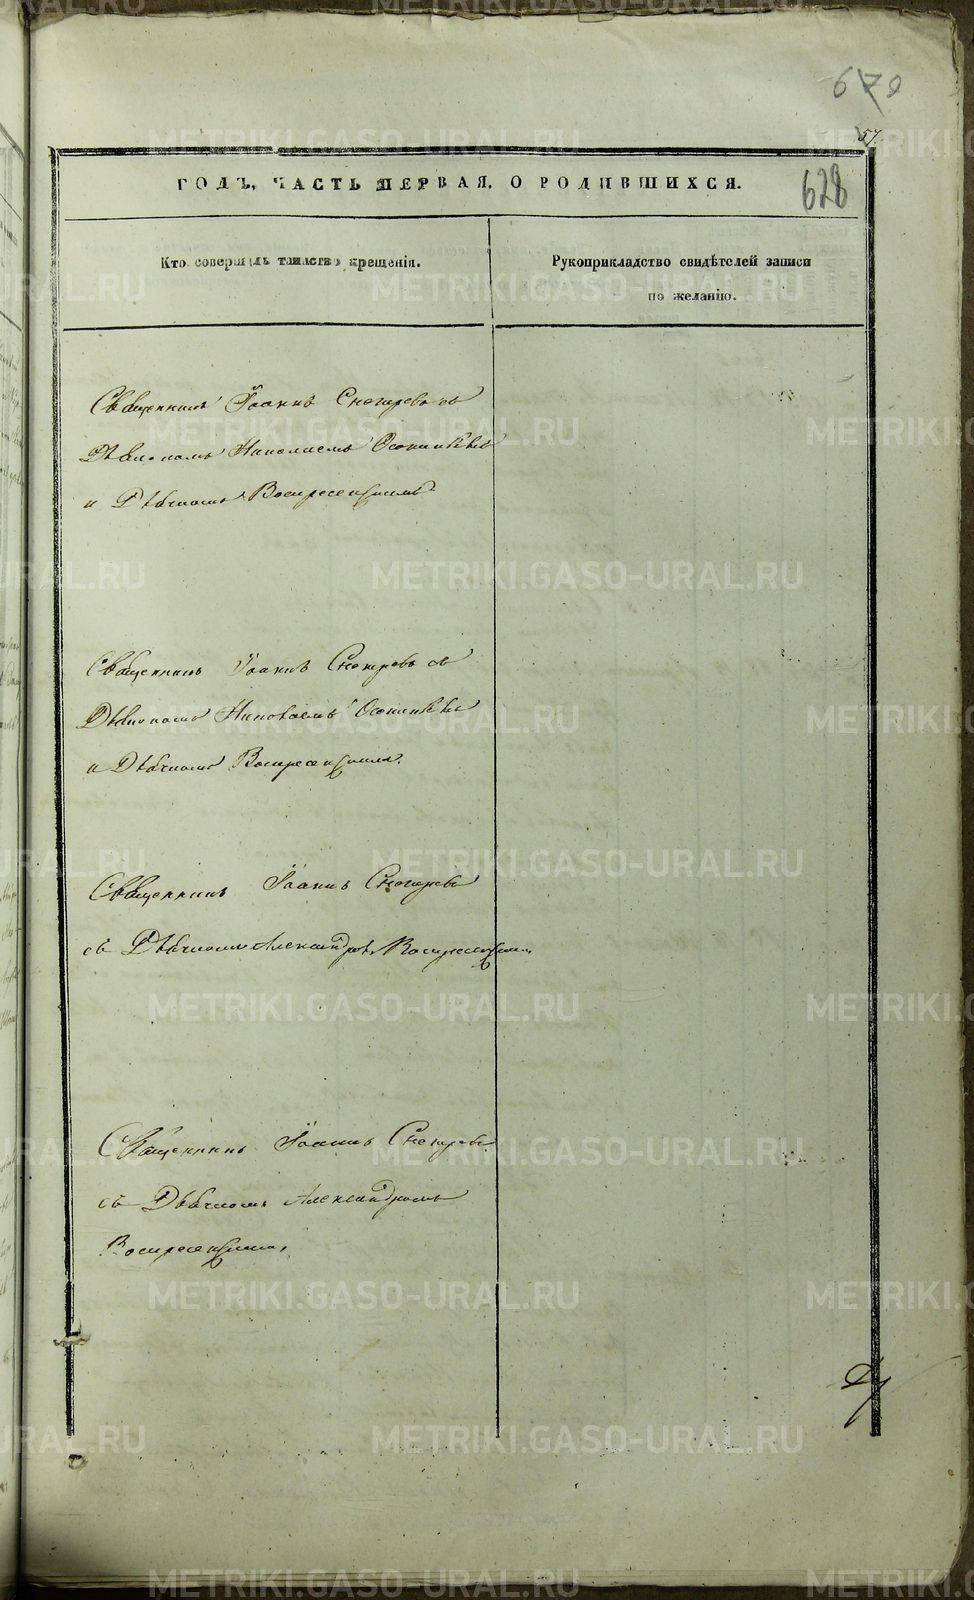 670
57
628
ГОДЪ, ЧАСТЬ ПЕРВАЯ, О РОДИВШИХСЯ.
Кто совершилъ таинство крещенія.
Рукоприкладство свидѣтелей записи
по желанію.
Священникъ Іоаннъ Снегиревъ съ
Діакономъ Николаемъ
и Дьячкомъ Воскресенскимъ
Священникъ Іоаннъ Снегиревъ съ
Діакономъ Николаемъ
и Дьячкомъ Воскресенскимъ.
Священникъ Іоаннъ Снегиревъ
съ Дьячкомъ Александромъ Воскресенским.
Священникъ Іоаннъ Снегиревъ
съ Дьячкомъ Александромъ
Воскресенскимъ.
METRIKI.GASO-URAL.RU